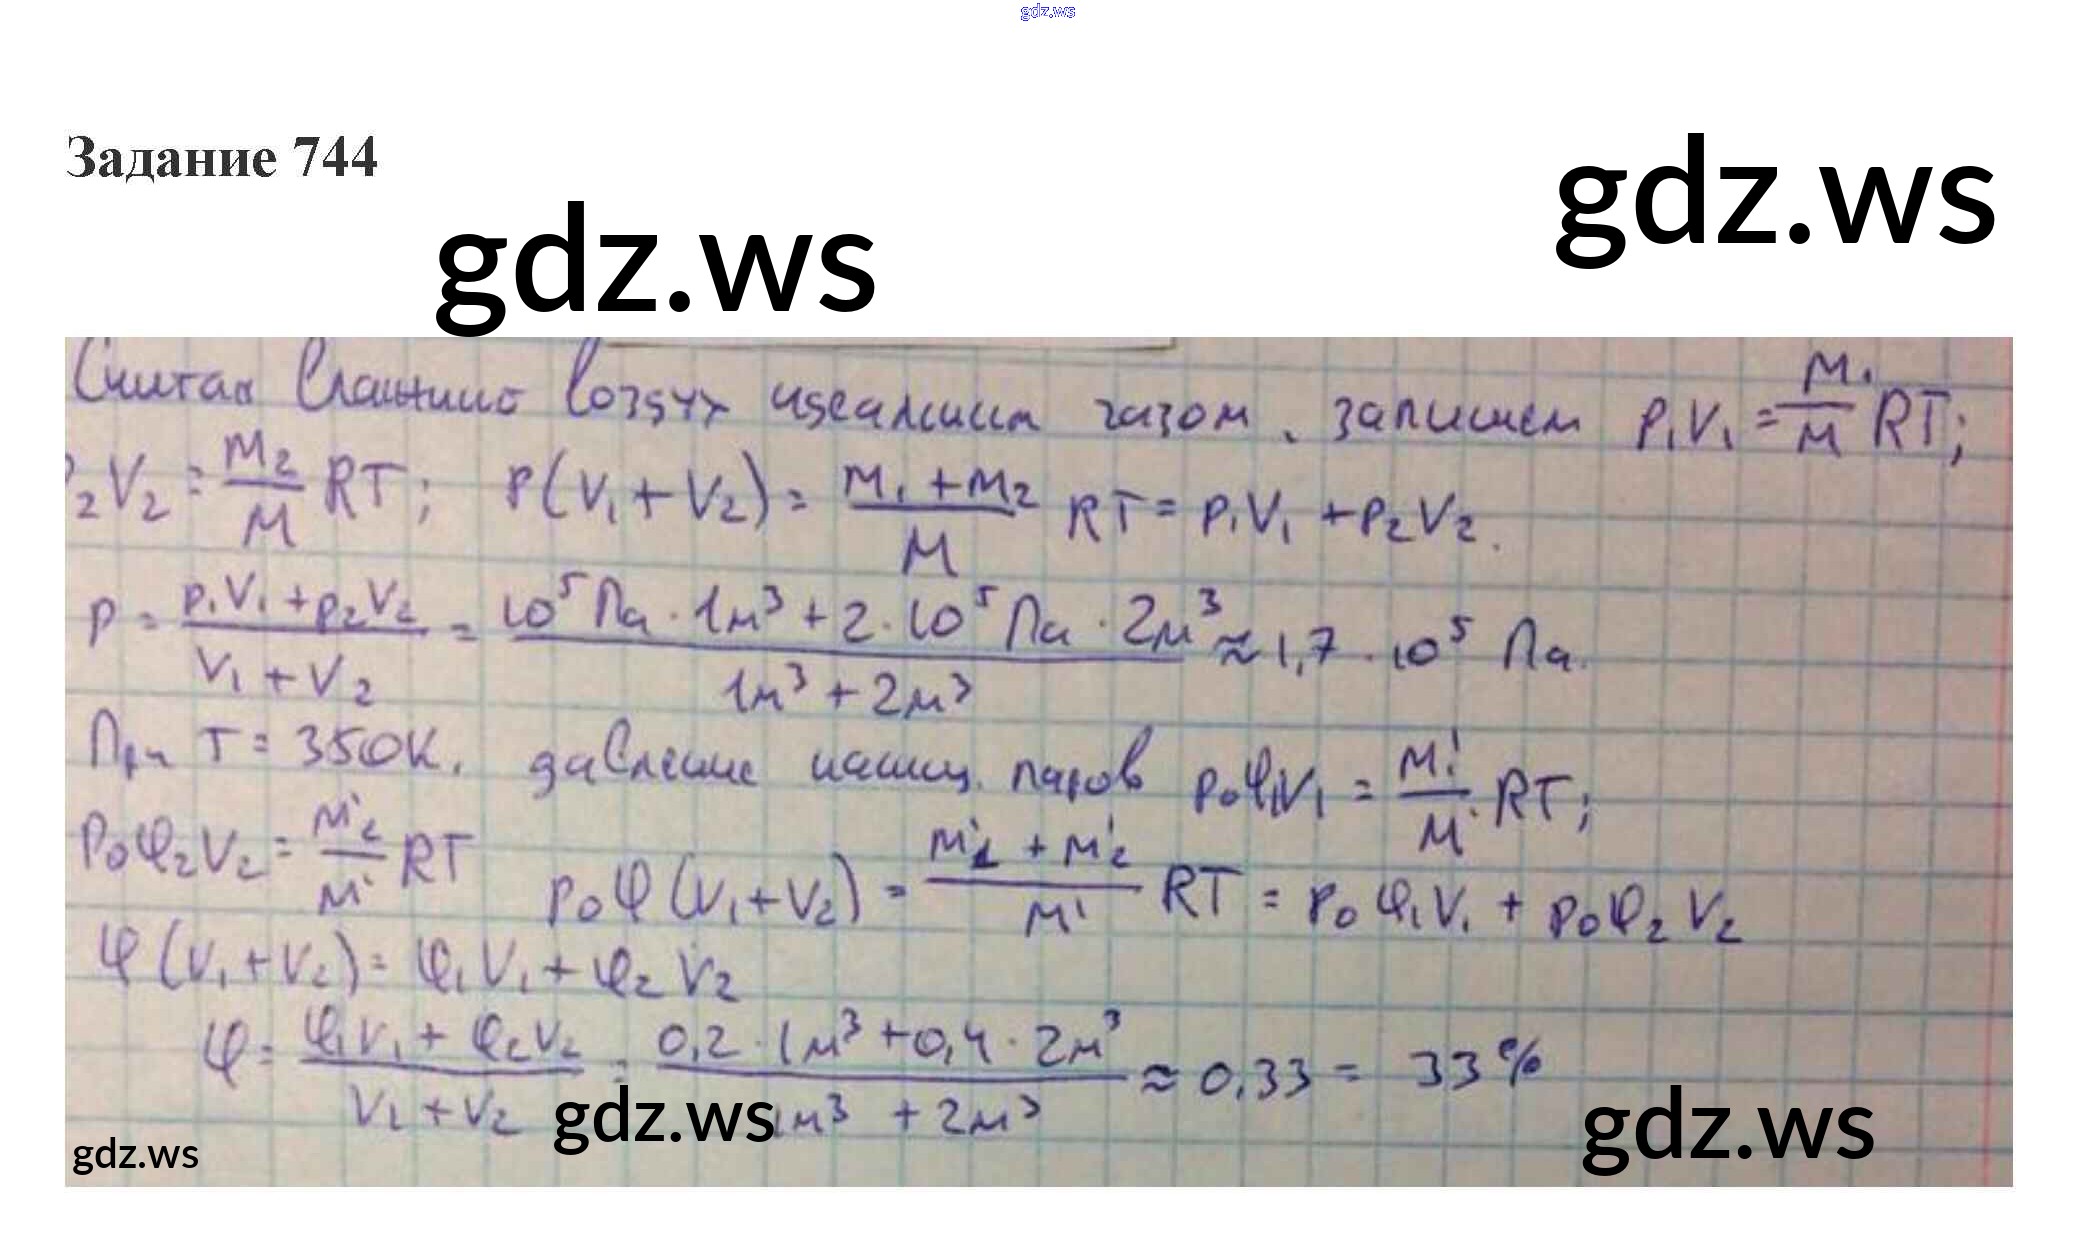 gdz.ws
Задание 744
gdz.ws
gdz.ws
Считая влажный воздух идеальным газом, запишем p₁V₁ = m₁/M RT;
p₂V₂ = m₂/M RT; p(V₁ + V₂) = (m₁ + m₂)/M RT = p₁V₁ + p₂V₂.
p = (p₁V₁ + p₂V₂)/(V₁ + V₂) = (10⁵ Па · 1м³ + 2 · 10⁵ Па · 2м³)/(1м³ + 2м³) ≈ 1,7 · 10⁵ Па.
При T = 350К, давление насыщ. паров p₀φ₁V₁ = m₁'/M' RT;
p₀φ₂V₂ = m'₂/M' RT p₀φ(V₁+V₂) = (m'₁ + m'₂)/M' RT = p₀φ₁V₁ + p₀φ₂V₂
φ(V₁+V₂) = φ₁V₁ + φ₂V₂
φ = (φ₁V₁ + φ₂V₂)/(V₁ + V₂) = (0,2 · 1м³ + 0,4 · 2м³)/(1м³ + 2м³) ≈ 0,33 = 33%
gdz.ws
gdz.ws
gdz.ws